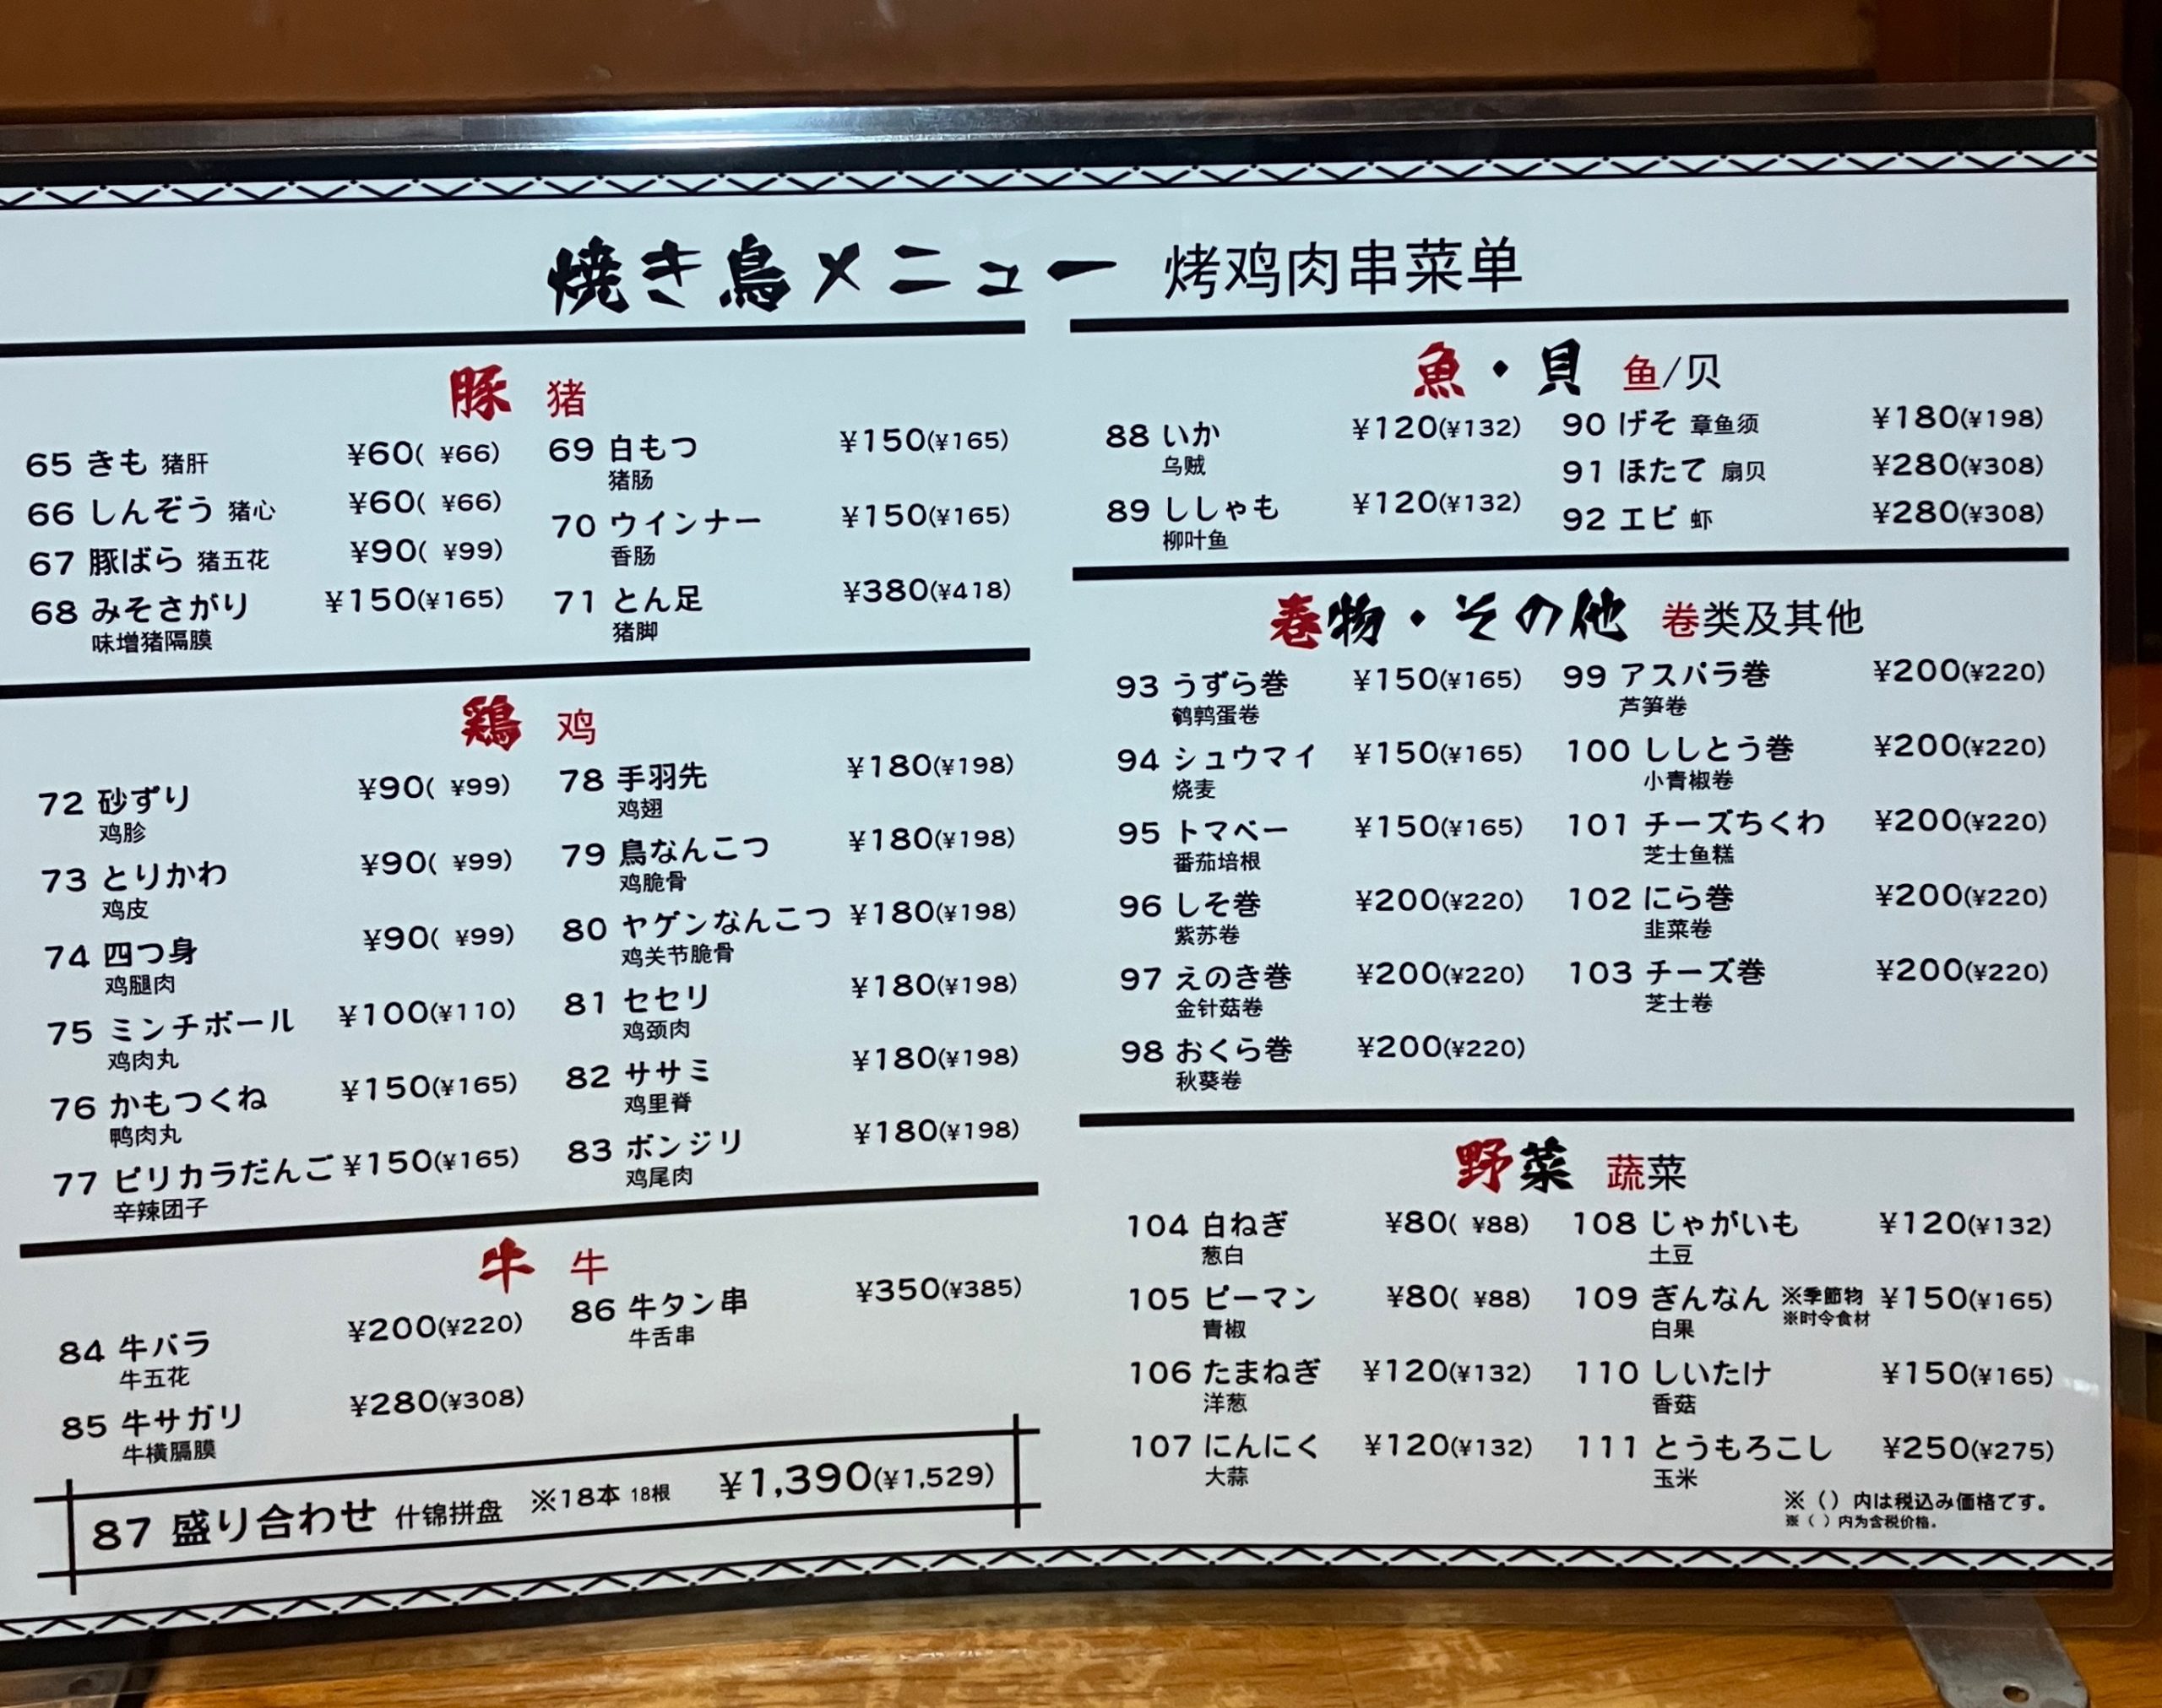 焼き鳥メニュー 烤鸡肉串菜单
豚 猪
65 きも 猪肝 ¥60( ¥66)
66 しんぞう 猪心 ¥60( ¥66)
67 豚ばら 猪五花 ¥90( ¥99)
68 みそさがり ¥150(¥165)
味增猪隔膜
69 白もつ ¥150(¥165)
猪肠
70 ウインナー ¥150(¥165)
香肠
71 とん足 ¥380(¥418)
猪脚
鶏 鸡
72 砂ずり ¥90( ¥99)
鸡胗
73 とりかわ ¥90( ¥99)
鸡皮
74 四つ身 ¥90( ¥99)
鸡腿肉
75 ミンチボール ¥100(¥110)
鸡肉丸
76 かもつくね ¥150(¥165)
鸭肉丸
77 ピリカラだんご ¥150(¥165)
辛辣团子
78 手羽先 ¥180(¥198)
鸡翅
79 鳥なんこつ ¥180(¥198)
鸡脆骨
80 ヤゲンなんこつ ¥180(¥198)
鸡关节脆骨
81 セセリ ¥180(¥198)
鸡颈肉
82 ササミ ¥180(¥198)
鸡里脊
83 ボンジリ ¥180(¥198)
鸡尾肉
牛 牛
84 牛バラ ¥200(¥220)
牛五花
85 牛サガリ ¥280(¥308)
牛横膈膜
86 牛タン串 ¥350(¥385)
牛舌串
87 盛り合わせ 什锦拼盘 ※18本 18根 ¥1,390(¥1,529)
魚・貝 鱼/贝
88 いか ¥120(¥132)
乌贼
89 ししゃも ¥120(¥132)
柳叶鱼
90 げそ 章鱼须 ¥180(¥198)
91 ほたて 扇贝 ¥280(¥308)
92 エビ 虾 ¥280(¥308)
巻物・その他 卷类及其他
93 うずら巻 ¥150(¥165)
鹌鹑蛋卷
94 シュウマイ ¥150(¥165)
烧麦
95 トマベー ¥150(¥165)
番茄培根
96 しそ巻 ¥200(¥220)
紫苏卷
97 えのき巻 ¥200(¥220)
金针菇卷
98 おくら巻 ¥200(¥220)
秋葵卷
99 アスパラ巻 ¥200(¥220)
芦笋卷
100 ししとう巻 ¥200(¥220)
小青椒卷
101 チーズちくわ ¥200(¥220)
芝士鱼糕
102 にら巻 ¥200(¥220)
韭菜卷
103 チーズ巻 ¥200(¥220)
芝士卷
野菜 蔬菜
104 白ねぎ ¥80( ¥88)
葱白
105 ピーマン ¥80( ¥88)
青椒
106 たまねぎ ¥120(¥132)
洋葱
107 にんにく ¥120(¥132)
大蒜
108 じゃがいも ¥120(¥132)
土豆
109 ぎんなん ※季節物 ¥150(¥165)
白果 ※时令食材
110 しいたけ ¥150(¥165)
香菇
111 とうもろこし ¥250(¥275)
玉米
※（）内は税込み価格です。
※（ ）内为含税价格。